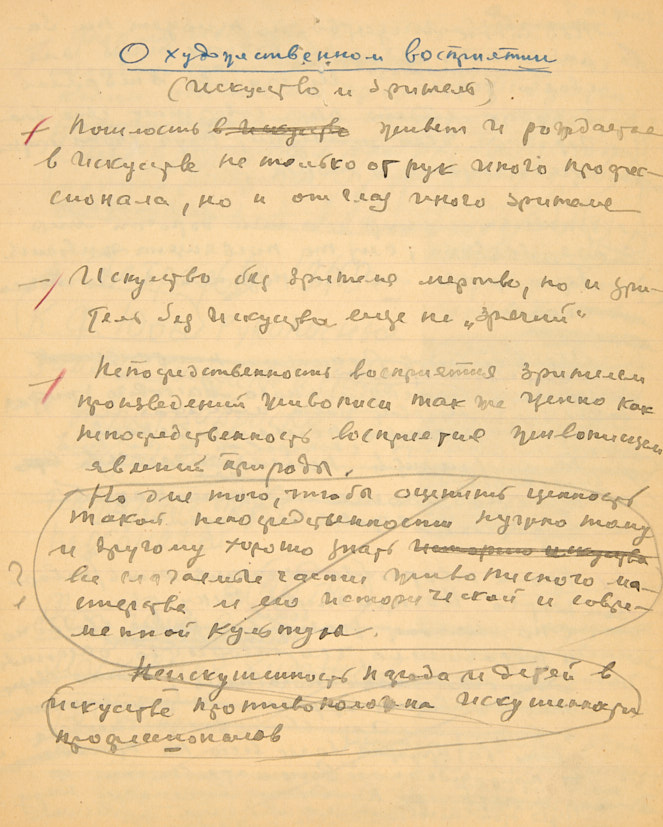 О художественном восприятии
(Искусство и зритель)
Пошлость в искусстве живет и рождается
в искусстве не только от рук иного профес-
сионала, но и от глаз иного зрителя
Искусство без зрителя мертво, но и зри-
тель без искусства еще не „зрячий“
Непосредственность восприятия зрителем
произведений живописи так же ценно как
непосредственность восприятия живописцем
явлений природы.
Но для того, чтобы оценить ценность
такой непосредственности нужно тому
и другому хорошо знать историю искусства
все слагаемые части живописного ма-
стерства и его исторической и совре-
менной культуры.
?
Неискушенность народа и детей в
искусстве противоположна искушенности
профессионалов